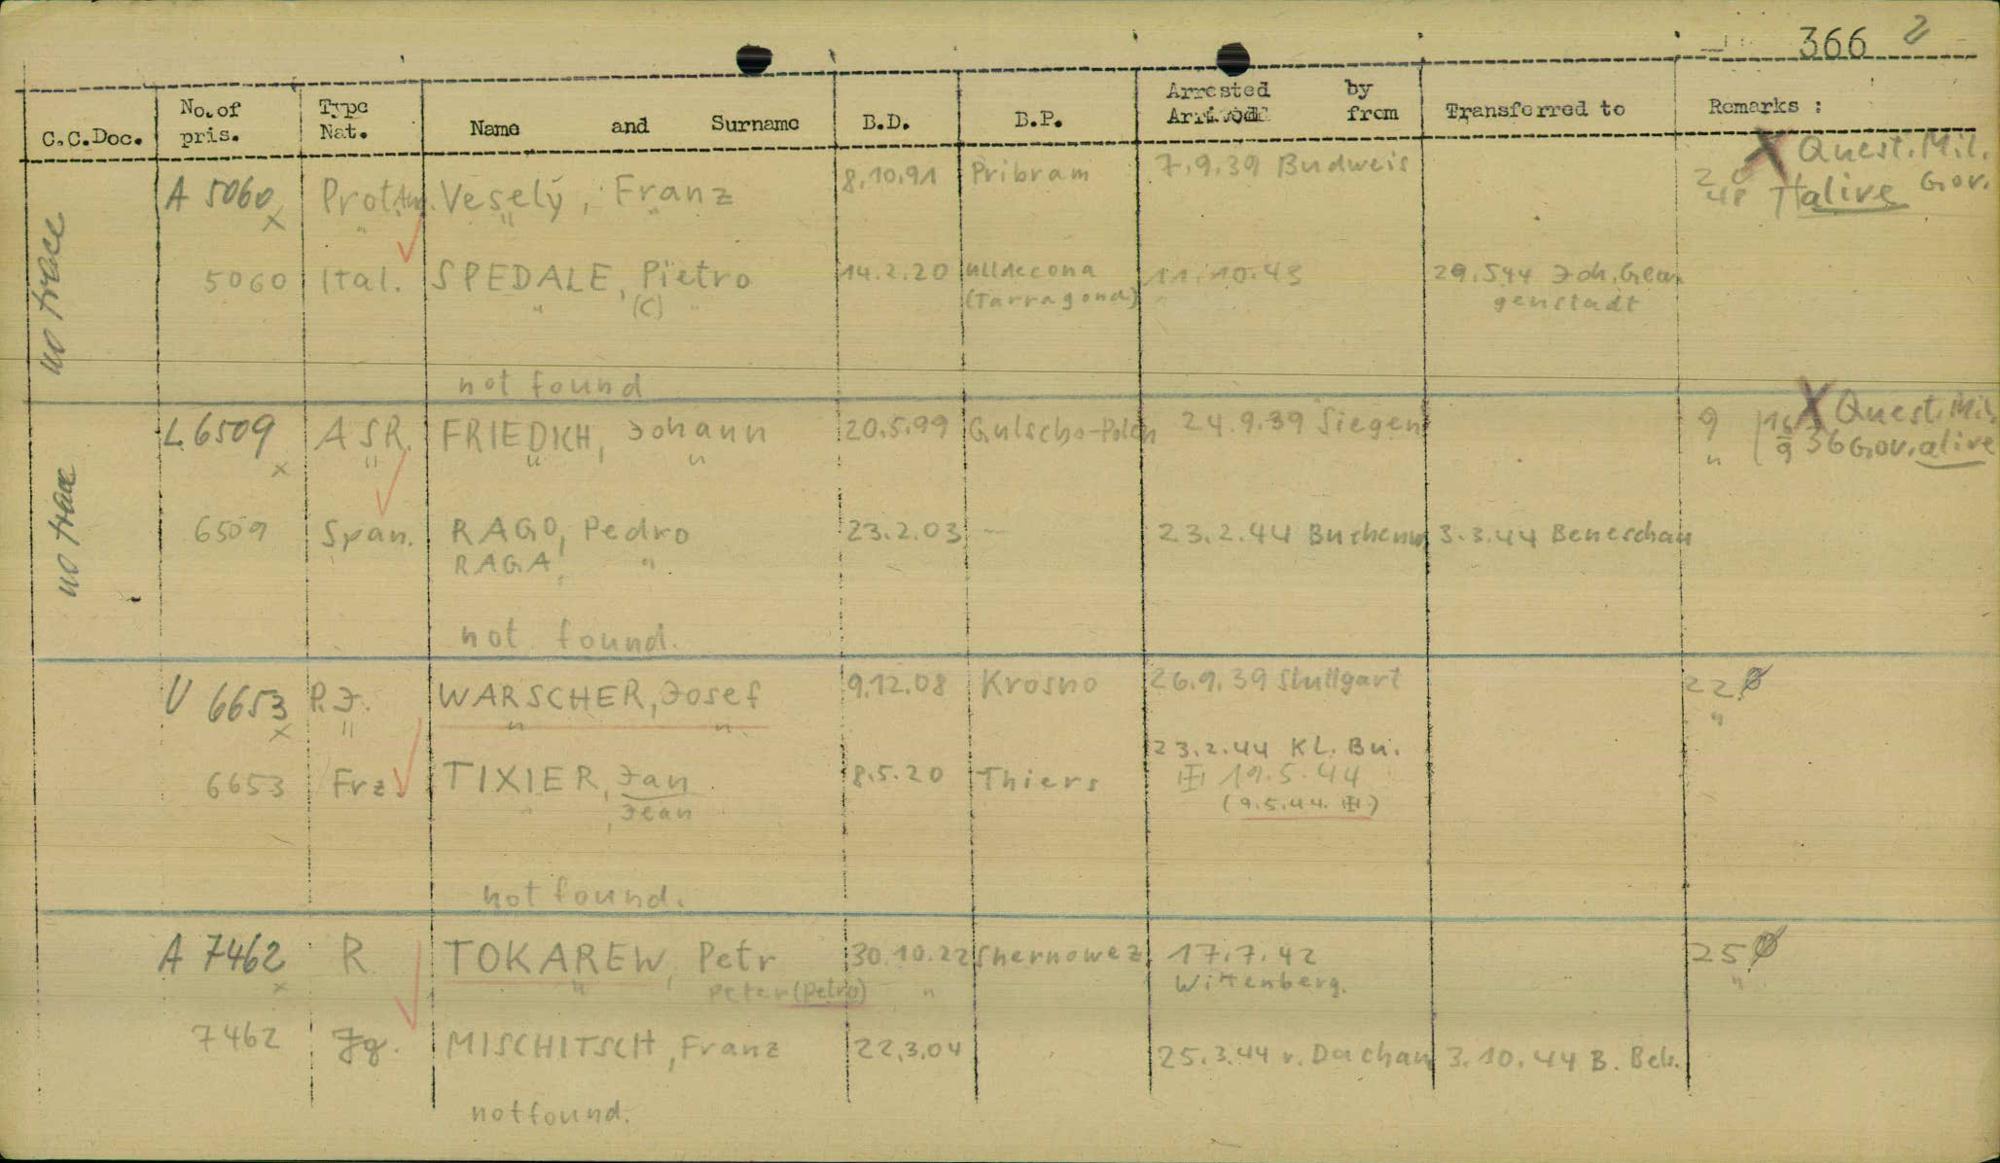 366 2
C.C.Doc. No. of pris. Type Nat. Name and Surname B.D. B.P. Arrested by Arrived from Transferred to Remarks :
no trace
A 5060 Prot. Vesely, Franz 8.10.91 Pribram 7.9.39 Budweis X Quest. Mil. Gov. alive
" " "
5060 Ital. SPEDALE, Pietro 14.2.20 Ulldecona 11.10.43 29.5.44 Joh. Geor
" (C) " (Tarragona) genstadt
not found
no trace
L 6509 ASR. FRIEDICH, Johann 20.5.99 Gulscho-Polen 24.9.39 Siegen 9 X Quest. Mil.
x " " " " 36 Gov. alive
6509 Span. RAGO, Pedro 23.2.03 — 23.2.44 Buchenw 3.3.44 Beneschau
RAGA, "
not found.
U 6653 P.J. WARSCHER, Josef 9.12.08 Krosno 26.9.39 Stuttgart 22.
x " " " "
23.2.44 KL. Bu.
6653 Frz. TIXIER, Jan 8.5.20 Thiers 19.5.44
Jean (9.5.44. )
not found.
A 7462 R TOKAREW, Petr 30.10.22 Shernowez 17.7.42 25
x " Peter (Petro) " Wittenberg. "
7462 Jg. MISCHITSCH, Franz 22.3.04 25.3.44 v. Dachau 3.10.44 B. Bels.
not found.